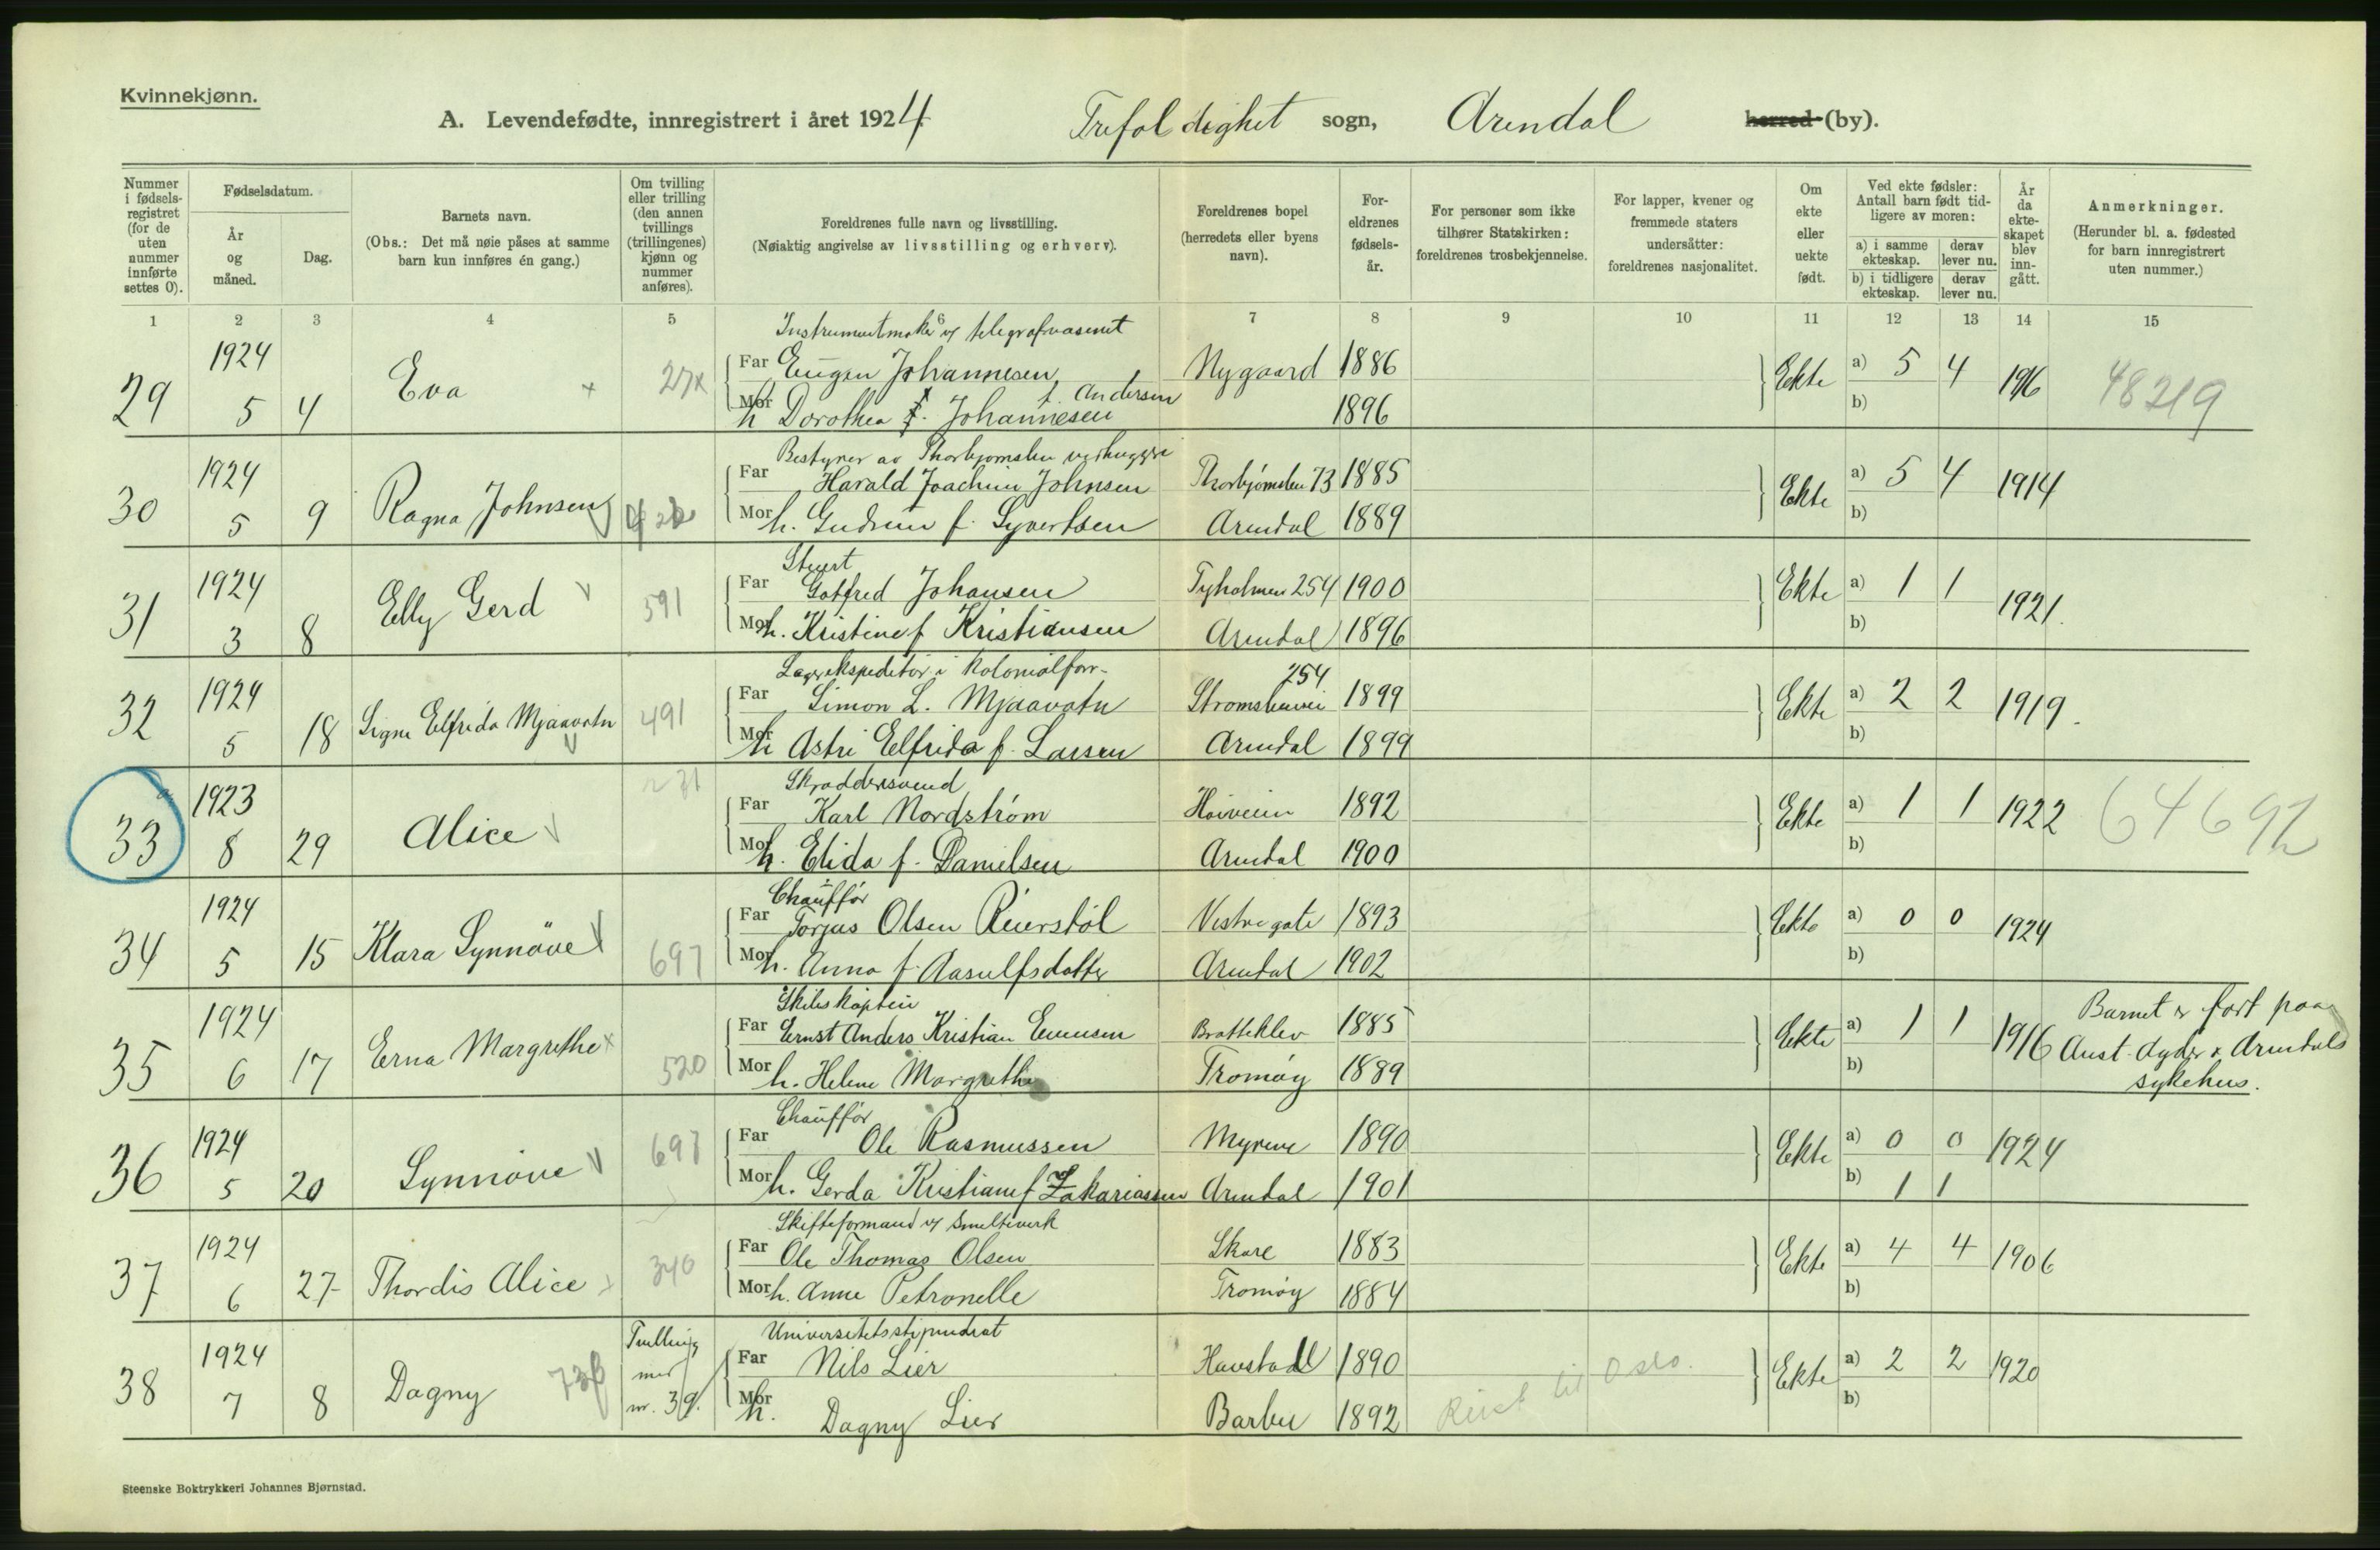 Kvinnekjønn.
A. Levendefødte, innregistrert i året 1924. Trefoldighet sogn, Arendal herred (by).
Nummer i fødsels-registret (for de uten nummer innførte settes 0).
Fødselsdatum.
År og måned.
Dag.
Barnets navn.
(Obs.: Det må nøie påses at samme barn kun innføres én gang.)
Om tvilling eller trilling (den annen tvillings (trillingenes) kjønn og nummer anføres).
Foreldrenes fulle navn og livsstilling.
(Nøiaktig angivelse av livsstilling og erhverv).
Foreldrenes bopel (herredets eller byens navn).
For-eldrenes fødsels-år.
For personer som ikke tilhører Statskirken: foreldrenes trosbekjennelse.
For lapper, kvener og fremmede staters undersåtter: foreldrenes nasjonalitet.
Om ekte eller uekte født.
Ved ekte fødsler: Antall barn født tid-ligere av moren:
a) i samme ekteskap.
derav lever nu.
b) i tidligere ekteskap.
derav lever nu.
År da ekte-skapet blev inn-gått.
Anmerkninger.
(Herunder bl. a. fødested for barn innregistrert uten nummer.)
1 2 3 4 5 6 7 8 9 10 11 12 13 14 15
Instrumentmaker v/ telegrafvæsenet
29 1924 5 4 Eva 27x
Far Eugen Johannesen Nygaard 1886 Ekte a) 5 4 1916 48219
f. Andersen
Mor h Dorothea f. Johannesen 1896 b)
Bestyrer av Thorbjørnsbu vedhuggeri
30 1924 5 9 Ragna Johnsen
Far Harald Joachim Johnsen Thorbjørnsbu 73 1885 Ekte a) 5 4 1914
Mor h. Gudrun f. Syvertsen Arendal 1889 b)
Stuert
31 1924 3 8 Elly Gerd 591
Far Gotfred Johansen Tyholmen 254 1900 Ekte a) 1 1 1921.
Mor h. Kristine f Kristiansen Arendal 1896 b)
Lagerekspeditør i kolonialforr.
32 1924 5 18 Signe Elfrida Mjaavatn 491
Far Simon L. Mjaavatn Strømsbuvei 254 1899 Ekte a) 2 2 1919.
Mor h Astri Elfrida f. Larsen Arendal 1899 b)
Skræddersvend
33 1923 8 29 Alice
Far Karl Nordstrøm Høiveien 1892 Ekte a) 1 1 1922 64692
Mor h. Elida f. Danielsen Arendal 1900 b)
Chauffør
34 1924 5 15 Klara Synnöve 697
Far Torjus Olsen Reierstøl Vestregate 1893 Ekte a) 0 0 1924
Mor h. Anna f. Aasulfsdatter Arendal 1902 b)
Skibskaptein
35 1924 6 17 Erna Margrethe 520
Far Ernst Anders Kristian Evensen Bratteklev 1885 Ekte a) 1 1 1916
Mor h. Helene Margrethe Tromøy 1889 b)
Barnet er født paa
Aust-Agder & Arendals
sykehus.
Chauffør
36 1924 5 20 Synnöve 697
Far Ole Rasmussen Myrene 1890 Ekte a) 0 0 1924
Mor h. Gerda Kristiane f Zakariassen Arendal 1901 b) 1 1
Skifteformand v/ Smelteverk
37 1924 6 27 Thordis Alice 340
Far Ole Thomas Olsen Skare 1883 Ekte a) 4 4 1906
Mor h. Anne Petronelle Tromøy 1884 b)
Universitetsstipendiat
38 1924 7 8 Dagny Tvilling med nr. 39.
Far Nils Lier Havstadl 1890 Reist til Oslo. Ekte a) 2 2 1920
Mor h. Dagny Lier Barbu 1892 b)
Steenske Boktrykkeri Johannes Bjørnstad.